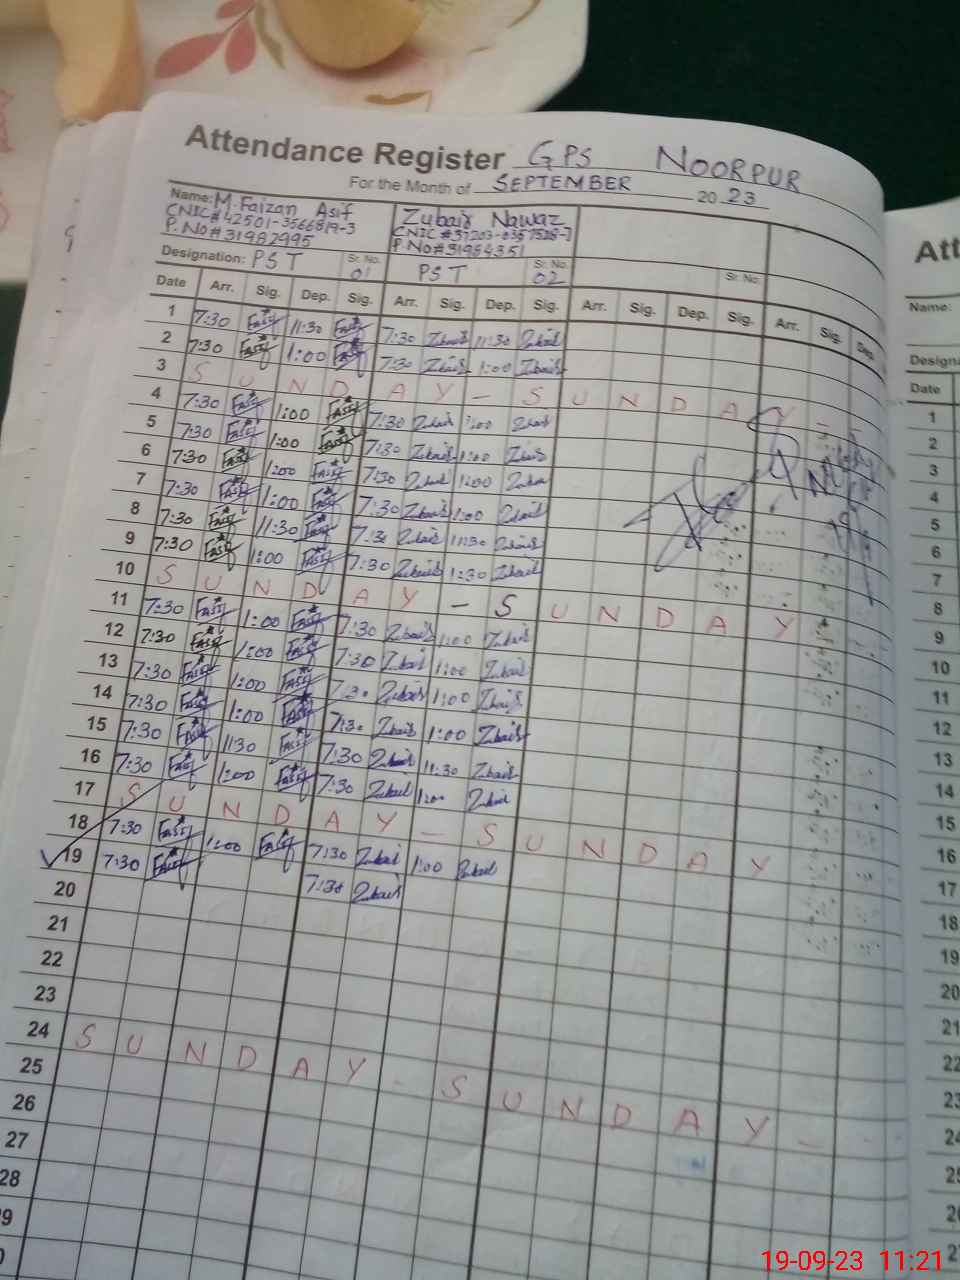 Attendance Register GPS NOORPUR
For the Month of SEPTEMBER 2023
Name: M. Faizan Asif
CNIC# 42501-3566819-3
P. No# 31982995
Zubair Nawaz
P. No# 31984351
Designation: PST Sr. No. 01 PST Sr. No. 02 Sr. No.
Date Arr. Sig. Dep. Sig. Arr. Sig. Dep. Sig. Arr. Sig. Dep. Sig. Arr. Sig. Dep.
1 7:30 Fasif 11:30 Fasif 7:30 Zubair 11:30 Zubair
2 7:30 Fasif 1:00 Fasif 7:30 Zubair 1:00 Zubair
3 SUNDAY - SUNDAY
4 7:30 Fasif 1:00 Fasif 7:30 Zubair 1:00 Zubair
5 7:30 Fasif 1:00 Fasif 7:30 Zubair 1:00 Zubair
6 7:30 Fasif 1:00 Fasif 7:30 Zubair 1:00 Zubair
7 7:30 Fasif 1:00 Fasif 7:30 Zubair 1:00 Zubair
8 7:30 Fasif 11:30 Fasif 7:30 Zubair 11:30 Zubair
9 7:30 Fasif 1:00 Fasif 7:30 Zubair 1:30 Zubair
10 SUNDAY - SUNDAY
11 7:30 Fasif 1:00 Fasif 7:30 Zubair 1:00 Zubair
12 7:30 Fasif 1:00 Fasif 7:30 Zubair 1:00 Zubair
13 7:30 Fasif 1:00 Fasif 7:30 Zubair 1:00 Zubair
14 7:30 Fasif 1:00 Fasif 7:30 Zubair 1:00 Zubair
15 7:30 Fasif 1130 Fasif 7:30 Zubair 11:30 Zubair
16 7:30 Fasif 1:00 Fasif 7:30 Zubair 1:00 Zubair
17 SUNDAY - SUNDAY
18 7:30 Fasif 1:00 Fasif 7:30 Zubair 1:00 Zubair
19 7:30 Fasif 7:30 Zubair
20
21
22
23
24 SUNDAY - SUNDAY -
25
26
27
28
9
0
Att
Name:
Design
Date
1
2
3
4
5
6
7
8
9
10
11
12
13
14
15
16
17
18
19
20
21
22
23
24
25
19-09-23 11:21